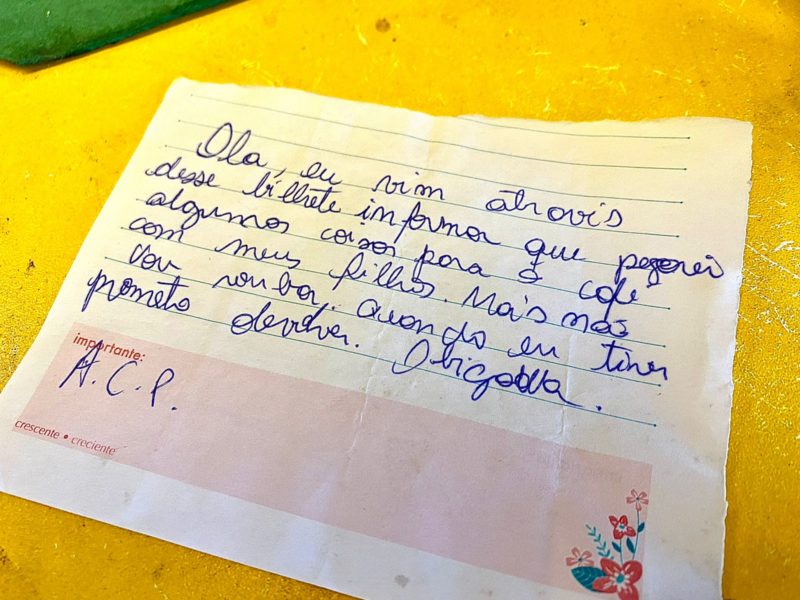 Ola, eu vim atravis
desse bilhete informar que pegarei
algumas coisas para o café
com meus filhos. Mais não
vou roubar, quando eu tiver
prometo devolver. Obigadda.
importante:
A.C.P.
crescente • creciente